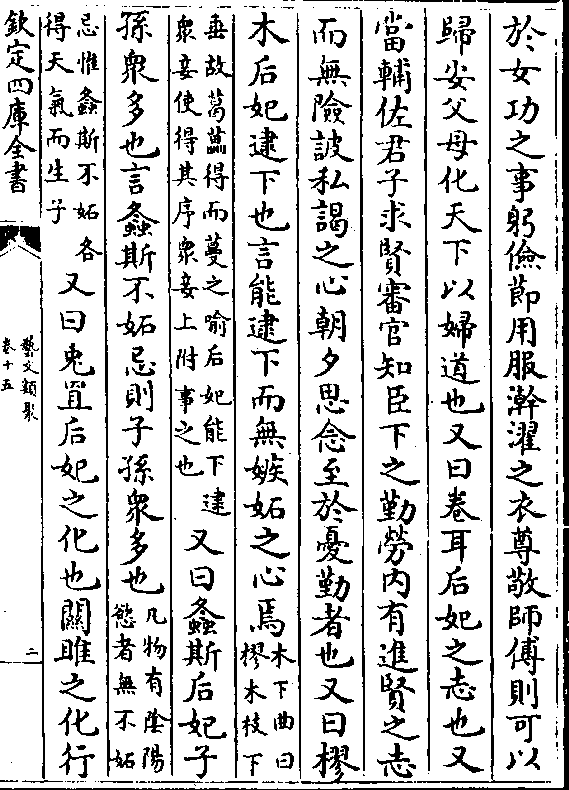 於女功之事躬儉節用服澣濯之衣尊敬師傅則可以
歸安父母化天下以婦道也又曰卷耳后妃之志也又
當輔佐君子求賢審官知臣下之勤勞内有進賢之志
而無險詖私謁之心朝夕思念至於憂勤者也又曰樛
木后妃逮下也言能逮下而無嫉妬之心焉
木下曲曰
樛木枝下
垂故葛藟得而蔓之喻后妃能下逮
衆妾使得其序衆妾上附事之也
又曰螽斯后妃子
孫衆多也言螽斯不妬忌則子孫衆多也
凡物有陰陽
慾者無不妬
忌惟螽斯不妬各
得天氣而生子
又曰兎罝后妃之化也關雎之化行
欽定四庫全書
藝文類聚
卷十五
二